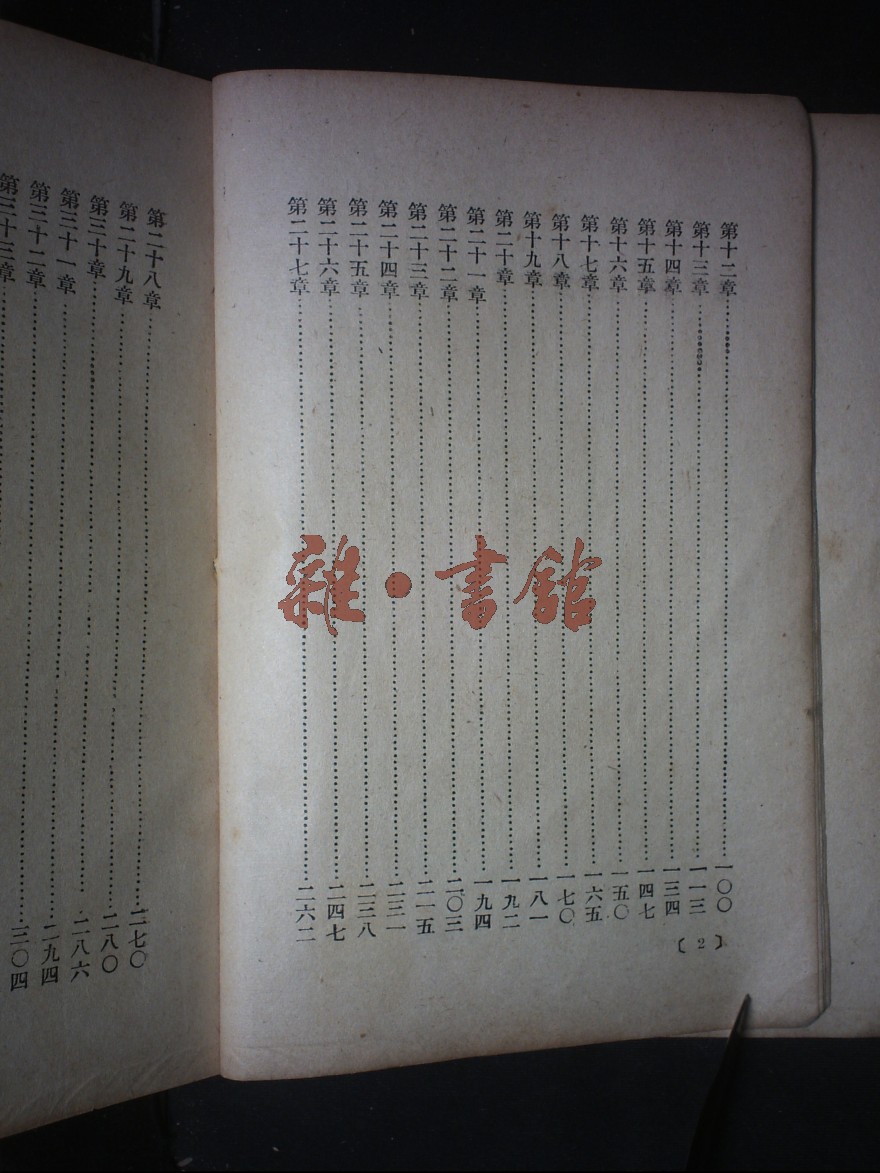 第十二章…………一〇〇
第十三章…………一一三
第十四章…………一三四
第十五章…………一四七
第十六章…………一五〇
第十七章…………一六五
第十八章…………一七〇
第十九章…………一八一
第二十章…………一九二
第二十一章…………一九四
第二十二章…………二〇三
第二十三章…………二一五
第二十四章…………二三一
第二十五章…………二三八
第二十六章…………二四七
第二十七章…………二六二
〔2〕
第二十八章…………二七〇
第二十九章…………二八〇
第三十章…………二八六
第三十一章…………二九四
第三十二章…………三〇四
第三十三章…………
雜·書館